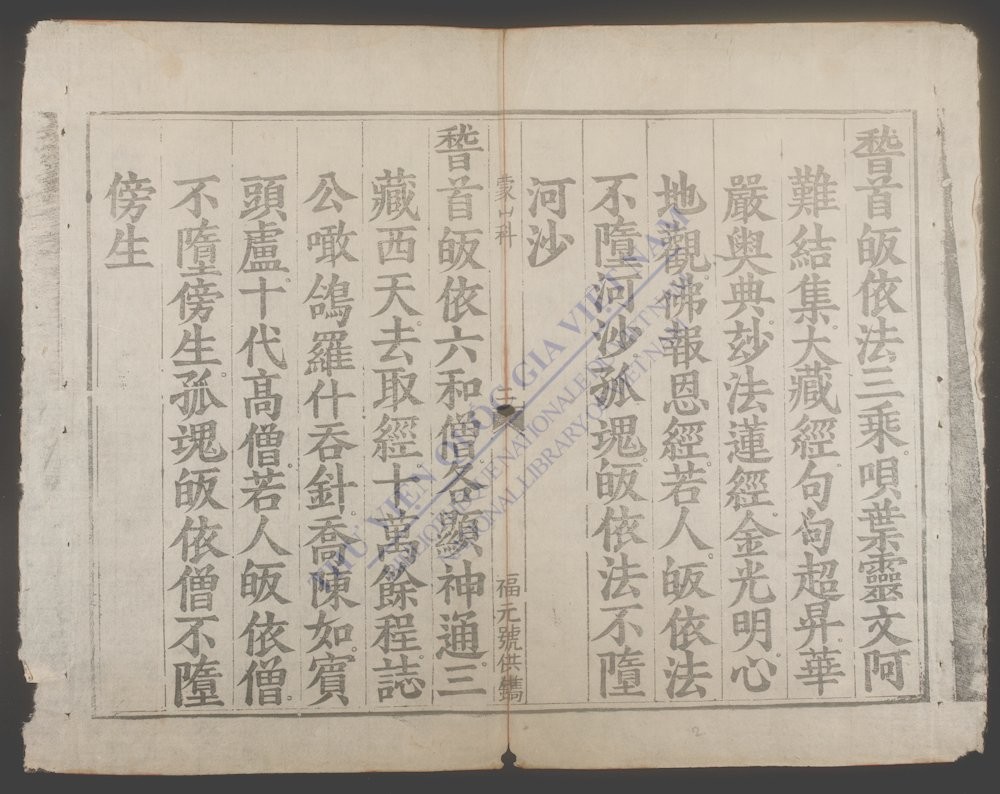 嵆首皈依法三乘唄葉靈文阿
難結集大藏經句句超昇華
嚴輿典玅法蓮經金光明心
地觀佛報恩經若人皈依法
不墮河沙孤塊皈依法不墮
河沙
蒙山科
三
福元號供鐫
嵆首皈依六和僧各顯神通三
藏西天去取經十萬餘程誌
公噉鴿羅什吞針喬陳如賓
頭盧十代高僧若人皈依僧
不墮傍生孤塊皈依僧不墮
傍生
THƯ VIỆN QUỐC GIA VIỆT NAM
BIBLIOTHÈQUE NATIONALE DU VIETNAM
NATIONAL LIBRARY OF VIETNAM
2